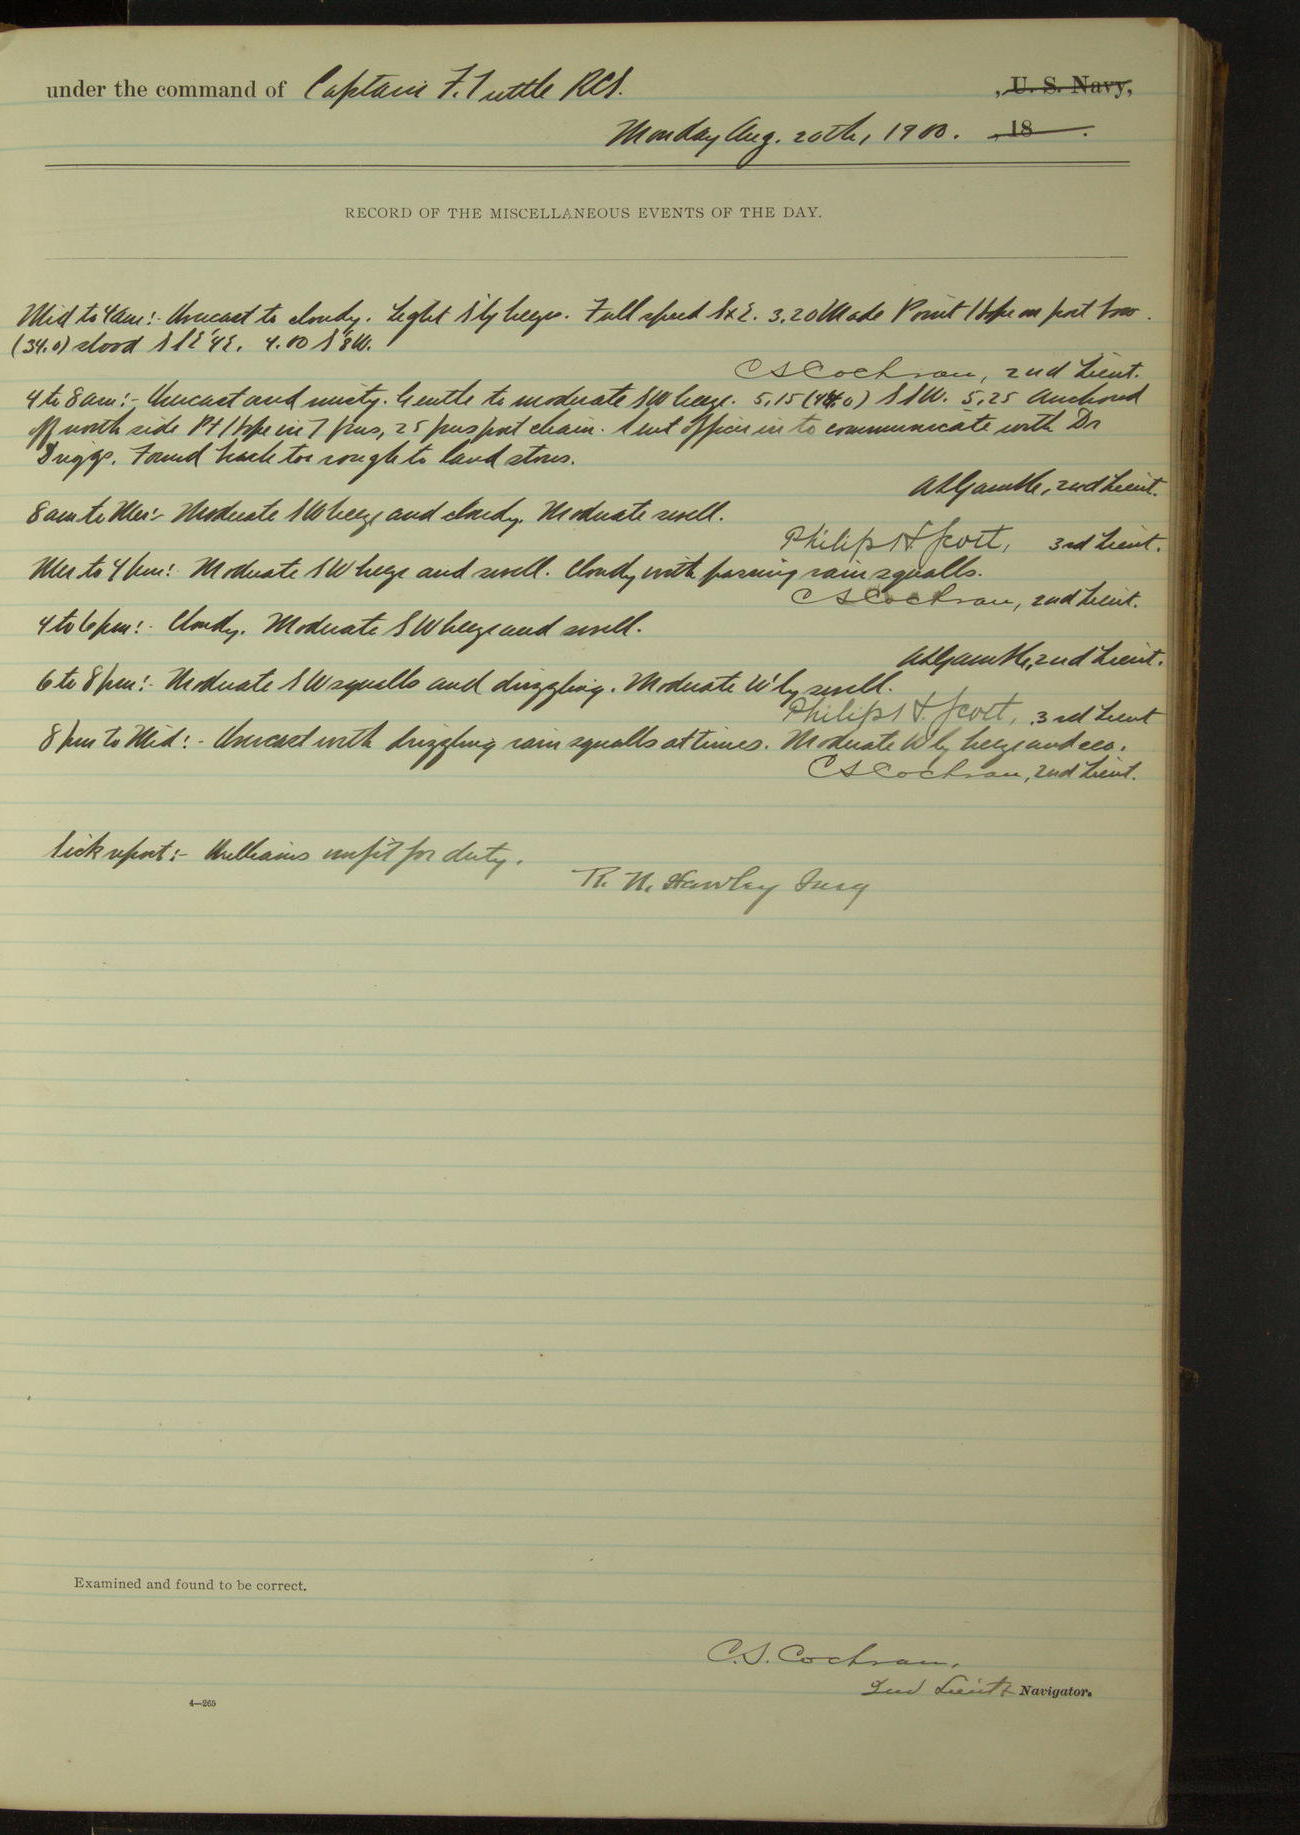 under the command of Captain F. Tuttle RCS. , U. S. Navy,
Monday Aug. 20th, 1900. , 18 .
RECORD OF THE MISCELLANEOUS EVENTS OF THE DAY.
Mid to 4am:- Overcast to cloudy. Light S'ly breeze. Full speed SxE. 3.20 Made Point Hope on port bow.
(34.0) stood 4.00
C S Cochran, 2nd Lieut.
4 to 8am:- Overcast and misty. Gentle to moderate SW breeze. 5.15 SSW. 5.25 Anchored
off north side Pt Hope in 7 fms, 25 fms port chain. Sent officer in to communicate with Dr
Driggs. Found too rough to land stores.
A L Gamble, 2nd Lieut.
8am to Mer:- Moderate SW breeze and cloudy. Moderate swell.
Philip H Scott, 3rd Lieut.
Mer to 4pm:- Moderate SW breeze and swell. Cloudy with passing rain squalls.
C S Cochran, 2nd Lieut.
4 to 6pm:- Cloudy. Moderate SW breeze and swell.
A L Gamble, 2nd Lieut.
6 to 8pm:- Moderate SW squalls and drizzling. Moderate W'ly swell.
Philip H. Scott, 3rd Lieut
8pm to Mid:- Overcast with drizzling rain squalls at times. Moderate W'ly breeze and sea.
C S Cochran, 2nd Lieut.
Sick report:- Williams unfit for duty.
R. N. Hawley Surg
Examined and found to be correct.
C. S. Cochran,
2nd Lieut & Navigator.
4—269